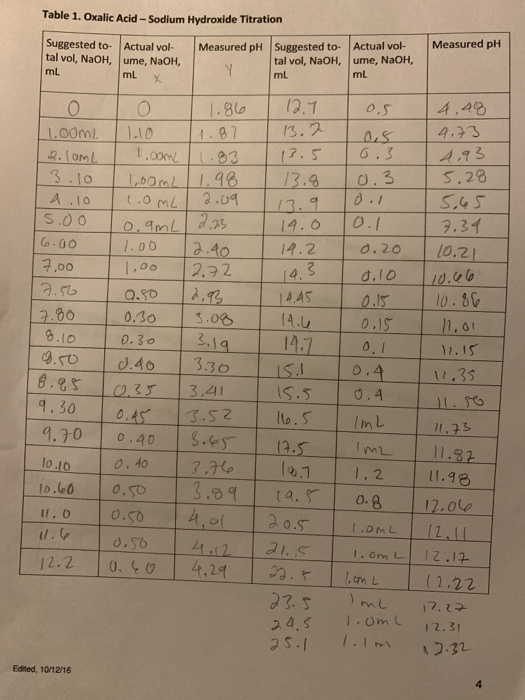 Table 1. Oxalic Acid – Sodium Hydroxide Titration
Suggested to- Actual vol- Measured pH Suggested to- Actual vol- Measured pH
tal vol, NaOH, ume, NaOH, tal vol, NaOH, ume, NaOH,
mL mL X Y mL mL
0 0 1.86 12.7 0.5 4.48
1.00mL 1.10 1.87 13.2 0.5 4.73
2.10mL 1.00mL 1.83 13.5 0.3 4.93
3.10 1.00mL 1.98 13.8 0.3 5.28
4.10 1.0 mL 2.09 13.9 0.1 5.65
5.00 0.9mL 2.23 14.0 0.1 7.34
6.00 1.00 2.40 14.2 0.20 10.21
7.00 1.00 2.72 14.3 0.10 10.66
7.50 0.50 2.93 14.45 0.15 10.86
7.80 0.30 3.08 14.6 0.15 11.01
8.10 0.30 3.19 14.7 0.1 11.15
8.50 0.40 3.30 15.1 0.4 11.35
8.85 0.35 3.41 15.5 0.4 11.50
9.30 0.45 3.52 16.5 1mL 11.73
9.70 0.40 3.65 17.5 1mL 11.87
10.10 0.40 3.76 18.7 1.2 11.98
10.60 0.50 3.89 19.5 0.8 12.06
11.0 0.50 4.01 20.5 1.0mL 12.11
11.6 0.50 4.12 21.5 1.0mL 12.17
12.2 0.60 4.29 22.5 1.0mL 12.22
23.5 1mL 12.27
24.5 1.0mL 12.31
25.1 1.1m 12.32
Edited, 10/12/16
4